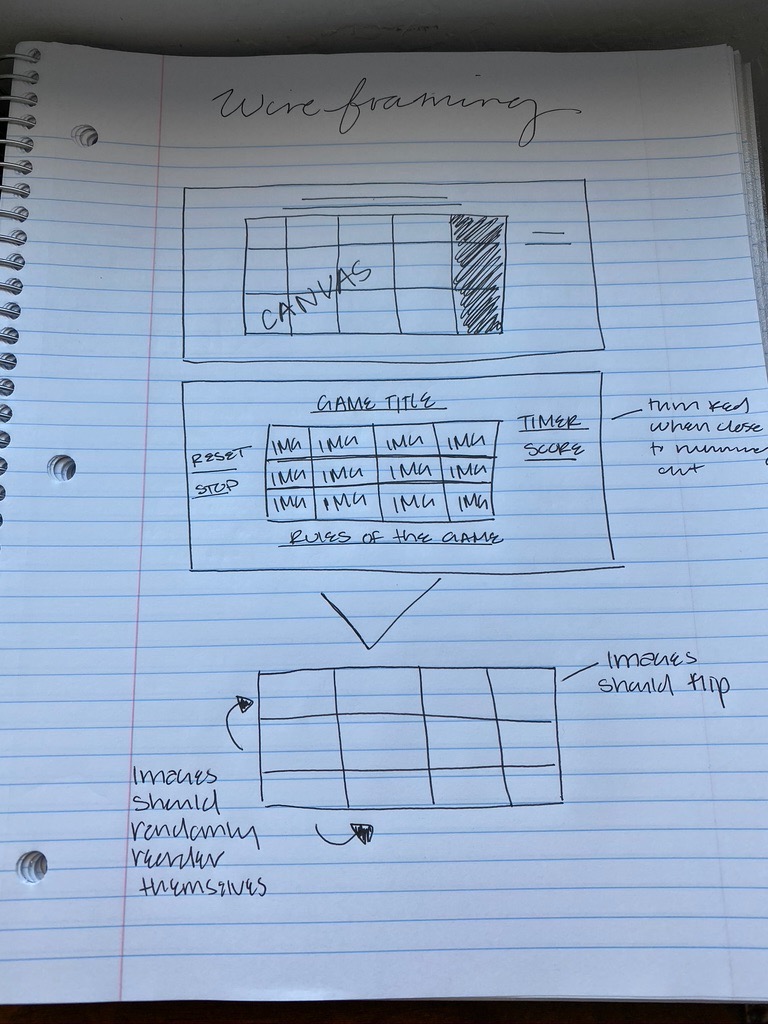 Wireframing
CANVAS
GAME TITLE
RESET
STOP
IMG IMG IMG IMG
IMG IMG IMG IMG
IMG IMG IMG IMG
TIMER
SCORE
turn red
when close
to running
out
RULES OF the GAME
Images
should flip
Images
should
randomly
render
themselves